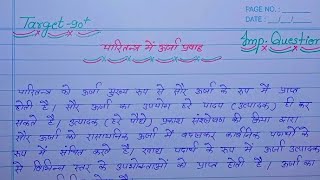 PAGE NO.:
DATE: / /
Target-90+
Imp. Question
पारितन्त्र में ऊर्जा प्रवाह
पारितन्त्र को ऊर्जा मुख्य रूप से सौर ऊर्जा के रूप में प्राप्त
होती है। सौर ऊर्जा का उपयोग हरे पादप (उत्पादक) ही कर
सकते हैं। उत्पादक (हरे पौधे) प्रकाश संश्लेषण की क्रिया द्वारा
सौर ऊर्जा को रासायनिक ऊर्जा में बदलकर कार्बनिक पदार्थों के
रूप में संचित करते हैं। खाद्य पदार्थों के रूप में ऊर्जा उत्पादक
से विभिन्न स्तर के उपभोक्ताओं को प्राप्त होती है। ऊर्जा का